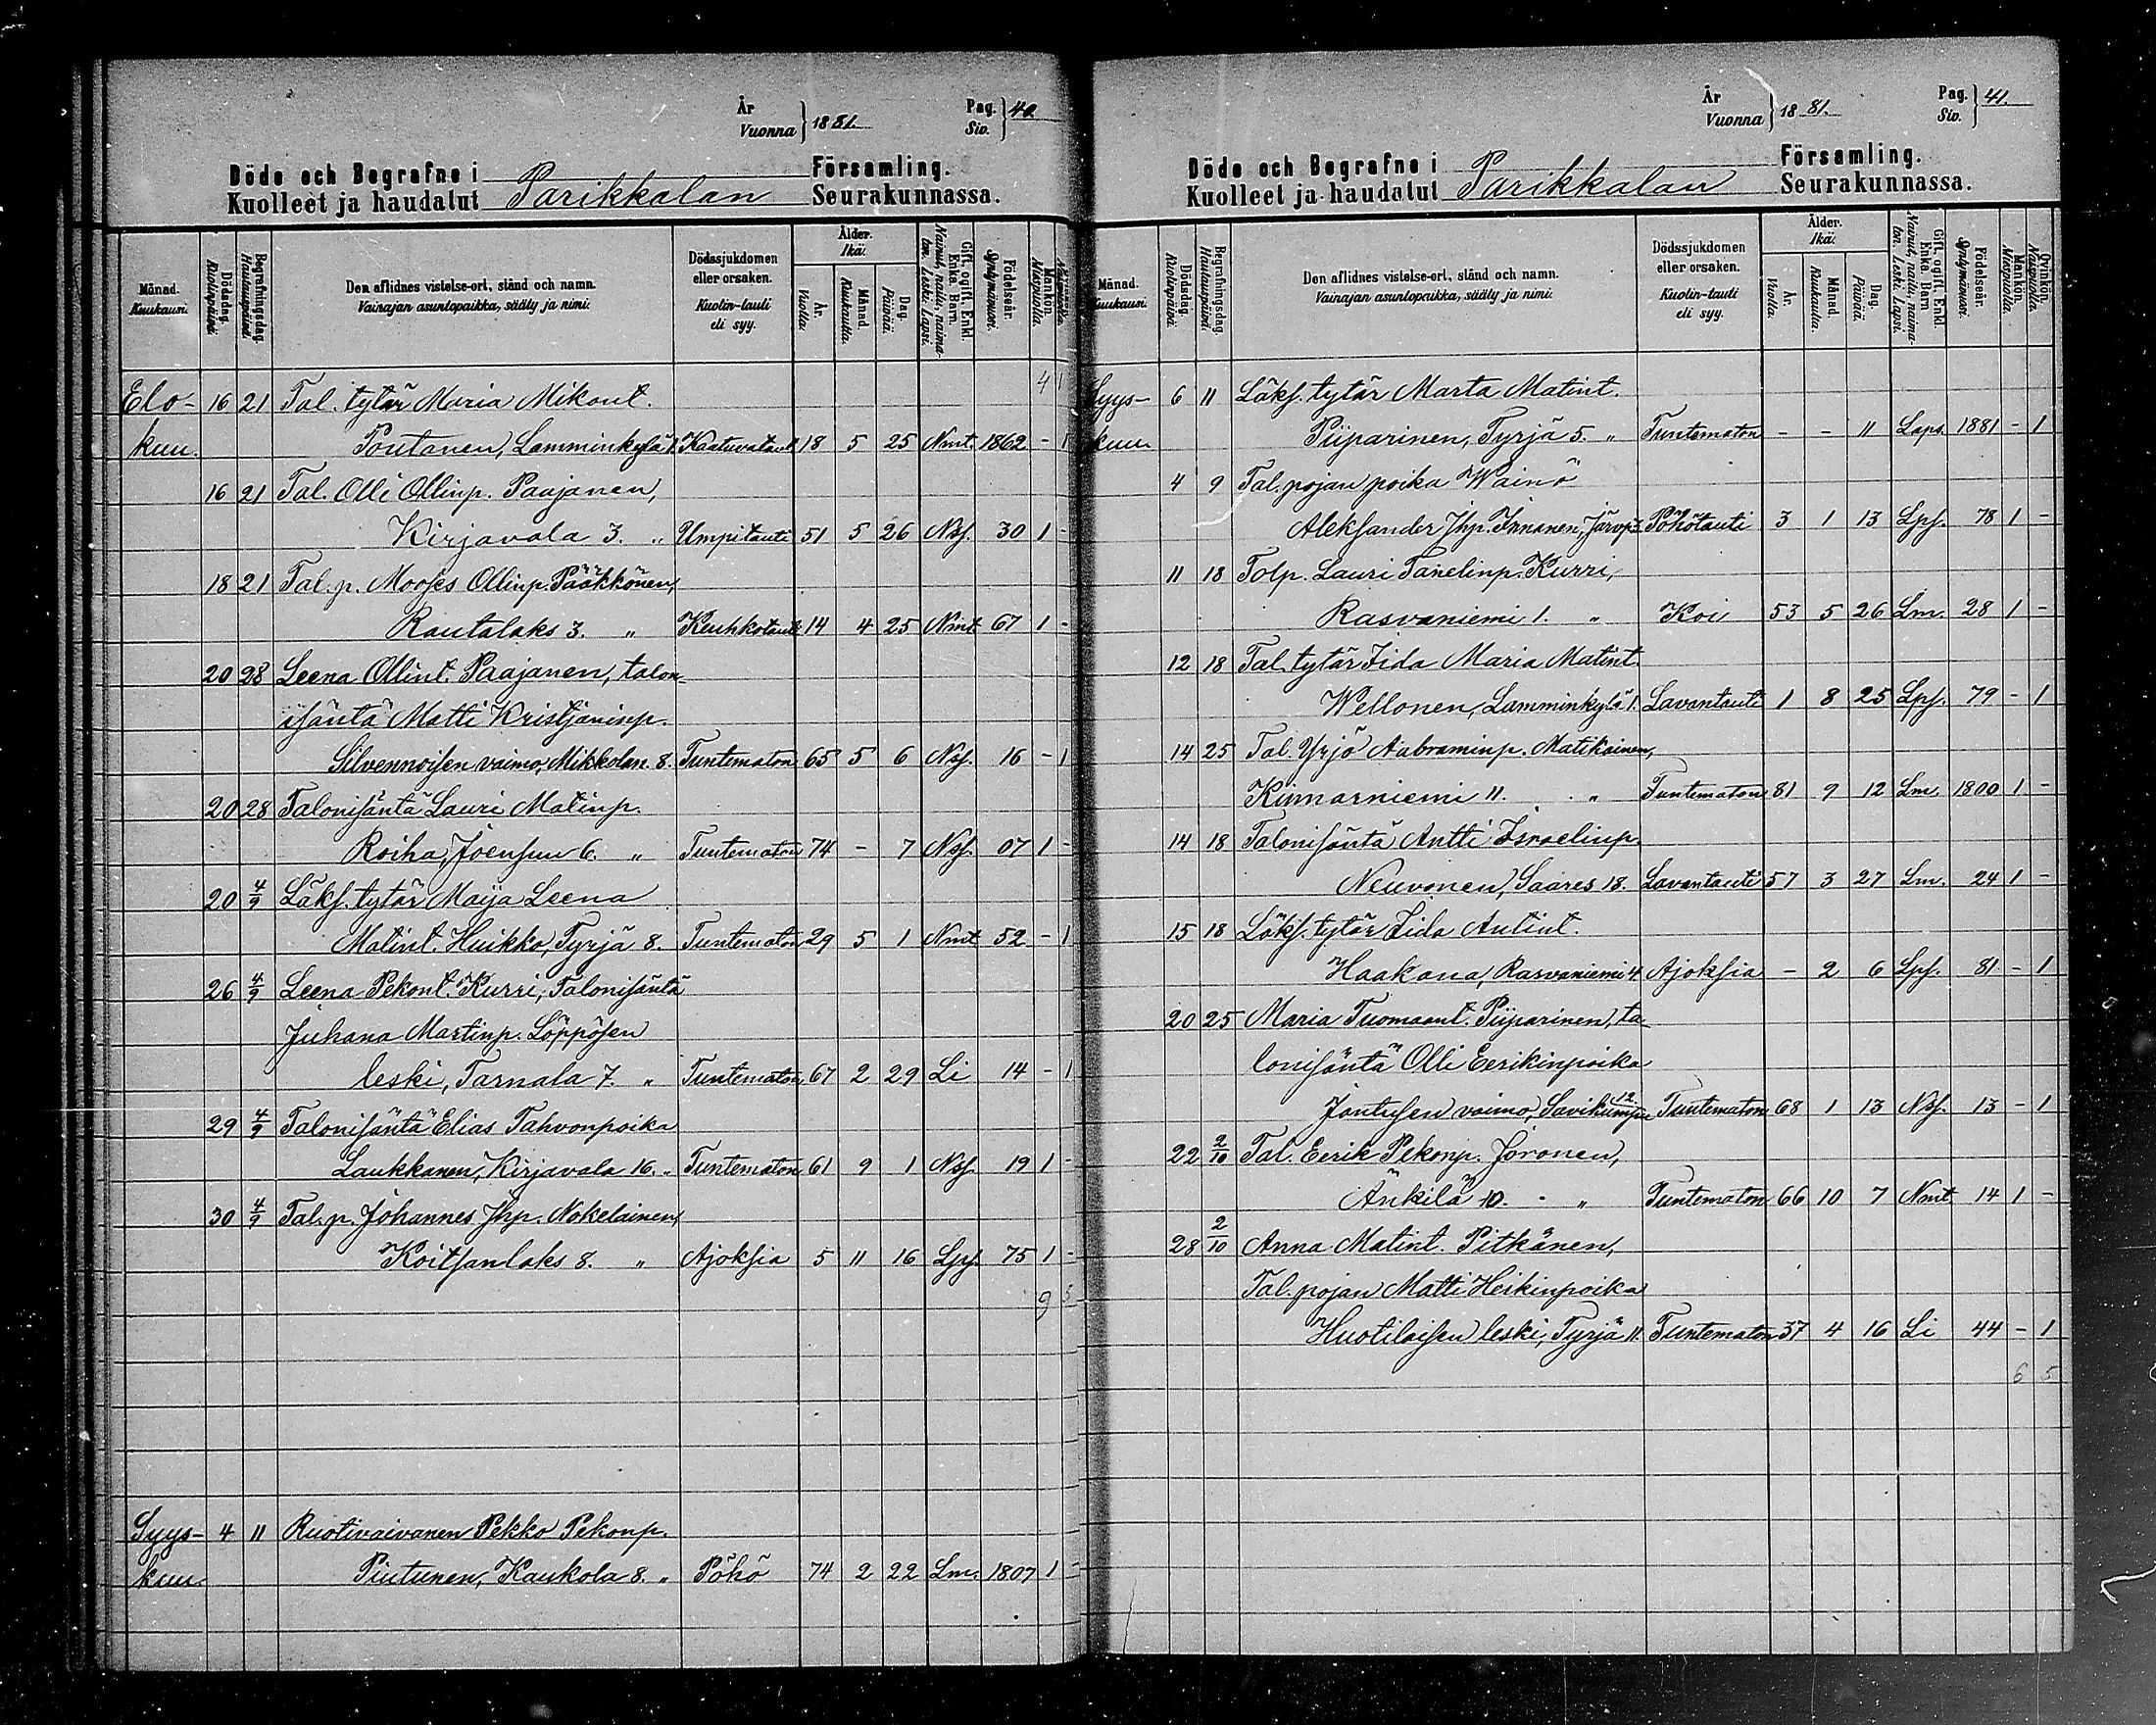 År
Vuonna } 1881.
Pag.
Siv. } 40
Döde och Begrafne i Församling.
Kuolleet ja haudatut Parikkalan Seurakunnassa.
Månad. Kuukausi.
Dödsdag. Kuolinpäivä.
Begrafningsdag. Hautauspäivä
Den aflidnes vistelse-ort, stånd och namn.
Vainajan asuntopaikka, sääty ja nimi.
Dödssjukdomen eller orsaken.
Kuolin-tauti eli syy.
Ålder. Ikä.
År. Vuotta.
Månad. Kuukautta.
Dag. Päivää.
Gift, ogift, Enkl. Enka. Barn.
Nainut, naitu, naimaton. Leski. Lapsi.
Födelseår. Syntymävuosi.
Mankön. Miespuolia.
4 1
Elo- 16 21 Tal. tytär Maria Mikont.
kuu. Poutanen, Lamminkylä 1. Kaatuvataut 18 5 25 Nmt. 1862 - 1
16 21 Tal. Olli Ollinp. Paajanen,
Kirjavala 3. " Umpitauti 51 5 26 Nsf. 30 1 -
18 21 Tal. p. Mooses Ollinp. Pääkkönen,
Rautalaks 3. " Keuhkotauti 14 4 25 Nmt 67 1 -
20 28 Leena Ollint. Paajanen, talon-
isäntä Matti Kristjaninp.
Silvennoisen vaimo, Mikkolan. 8. Tuntematon 65 5 6 Nsf. 16 - 1
20 28 Talonisäntä Lauri Matinp.
Roiha, Joensuu 6. " Tuntematon 74 - 7 Nsf. 07 1 -
20 4/9 Läks. tytär Maija Leena
Matint. Huikko, Tyrjä 8. Tuntematon 29 5 1 Nmt 52 - 1
26 4/9 Leena Pekont. Kurri, Talonisäntä
Juhana Martinp. Löppösen
leski, Tarnala 7. " Tuntematon 67 2 29 Li 14 - 1
29 4/9 Talonisäntä Elias Tahvonpoika
Laukkanen, Kirjavala 16. " Tuntematon 61 9 1 Nsf. 19 1 -
30 4/9 Tal. p. Johannes Jhp. Nokelainen,
Koitsanlaks 8. " Ajoksia 5 11 16 Lps. 75 1 -
9 5
Syys- 4 11 Ruotivaivanen Pekko Pekonp.
kuu. Piutunen, Kaukola 8. " Pöhö 74 2 22 Lm. 1807 1 -
År
Vuonna } 1881.
Pag.
Siv. } 41.
Döde och Begrafne i Församling.
Kuolleet ja haudatut Parikkalan Seurakunnassa.
Månad. Kuukausi.
Dödsdag. Kuolinpäivä.
Begrafningsdag. Hautauspäivä.
Den aflidnes vistelse-ort, stånd och namn.
Vainajan asuntopaikka, sääty ja nimi.
Dödssjukdomen eller orsaken.
Kuolin-tauti eli syy.
Ålder. Ikä.
År. Vuotta.
Månad. Kuukautta.
Dag. Päivää.
Gift, ogift, Enkl. Enka. Barn
Nainut, naitu, naimaton. Leski. Lapsi.
Födelseår. Syntymävuosi.
Mankön. Miespuolia.
Qvinkön. Naispuolia.
Syys- 6 11 Läks. tytär Marta Matint.
kuu. Piiparinen, Tyrjä 5. " Tuntematon - - 11 Laps. 1881 - 1
4 9 Tal. pojan poika Wäinö
Aleksander Jhp. Innanen, Järvp. 3. Pöhötauti 3 1 13 Lps. 78 1 -
11 18 Tolp. Lauri Tanelinp. Kurri,
Rasvaniemi 1. " Koi 53 5 26 Lm. 28 1 -
12 18 Tal. tytär Iida Maria Matint.
Wellonen, Lamminkylä 1. Lavantauti 1 8 25 Lps. 79 - 1
14 25 Tal. Yrjö Aabraminp. Matikainen,
Kinnarniemi 11. " Tuntematon 81 9 12 Lm. 1800 1 -
14 18 Talonisäntä Antti Israelinp.
Neuvonen, Saares 18. Lavantauti 57 3 27 Lm. 24 1 -
15 18 Läks. tytär Iida Antint.
Haakana, Rasvaniemi 4 Ajoksia - 2 6 Lps. 81 - 1
20 25 Maria Tuomaant. Piiparinen, ta-
lonisäntä Olli Eerikinpoika
Jantusen vaimo, Savikumpu 12. Tuntematon 68 1 13 Nsf. 13 - 1
22 2/10 Tal. Eerik Pekonp. Joronen,
Änkilä 10. " Tuntematon 66 10 7 Nmt. 14 1 -
28 2/10 Anna Matint. Pitkänen,
Tal. pojan Matti Heikinpoika
Huotilaisen leski, Tyrjä 11. Tuntematon 37 4 16 Li 44 - 1
6 5